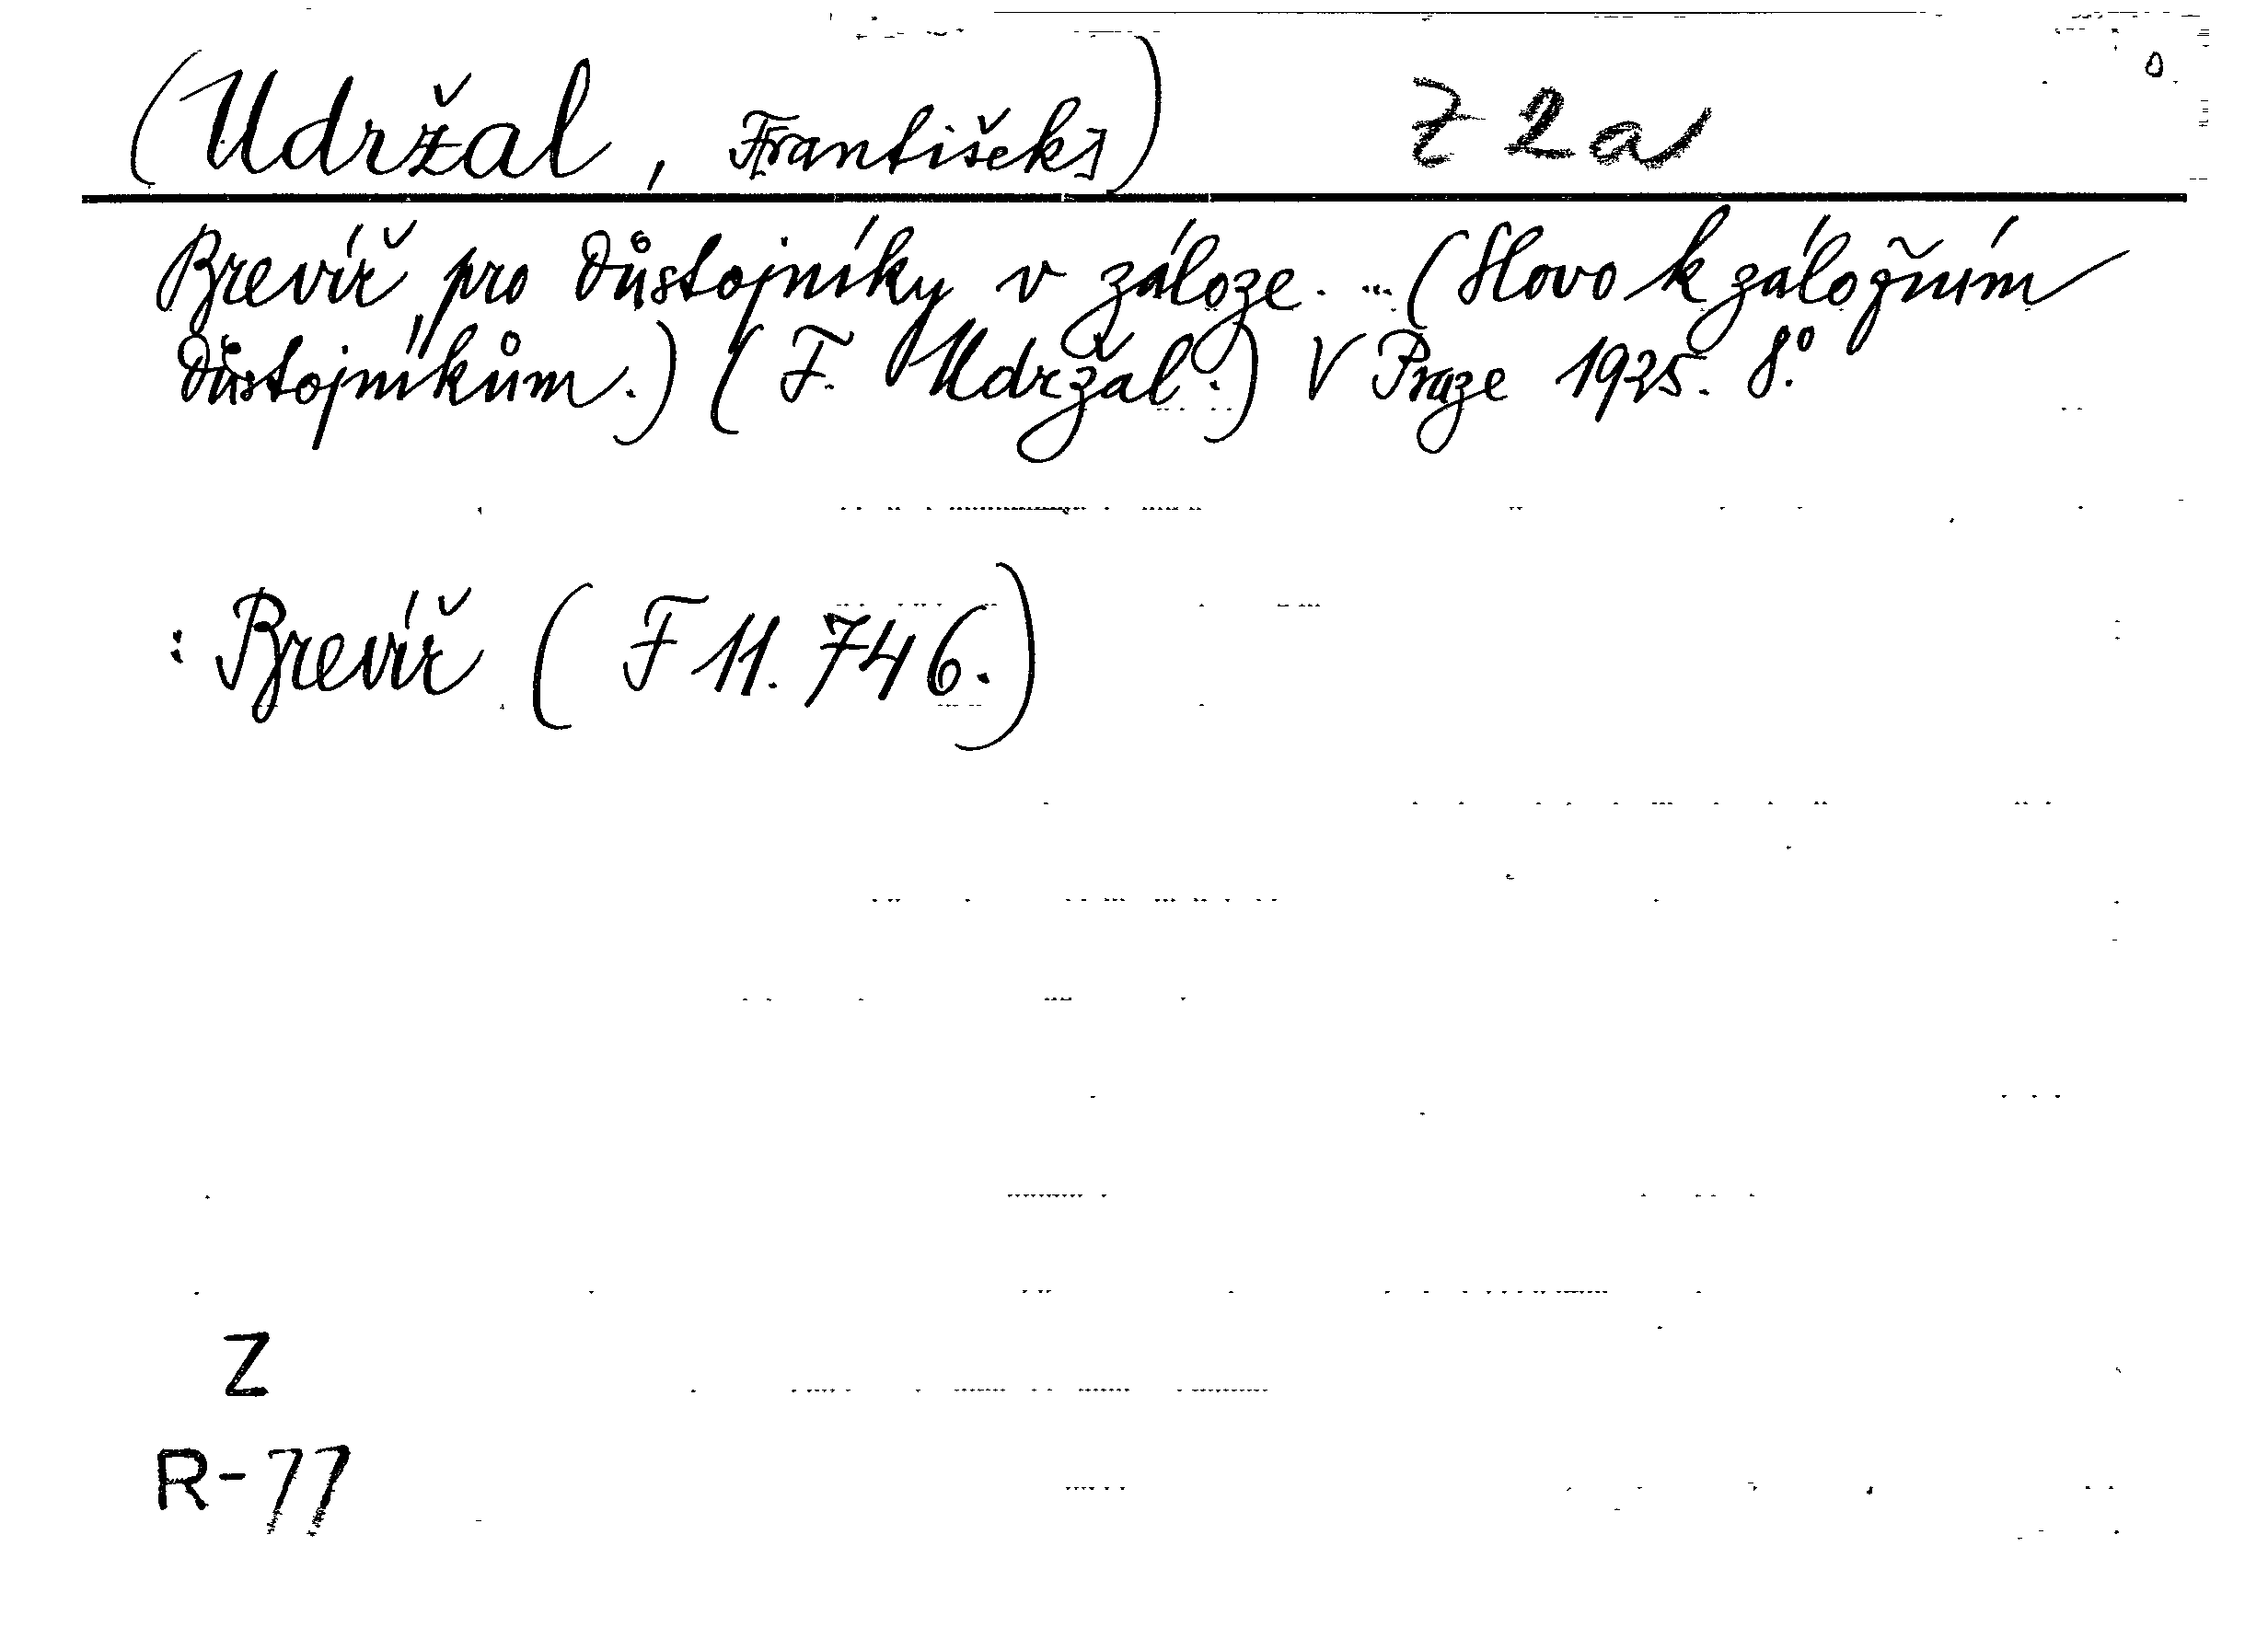 (Udržal, F[rantišek]) Z 2a
Brevíř pro důstojníky v záloze. ... (Slovo k záložním
důstojníkům.) (F. Udržal.) V Praze 1925. 8.°
: Brevíř (F 11.746.)
Z
R-77